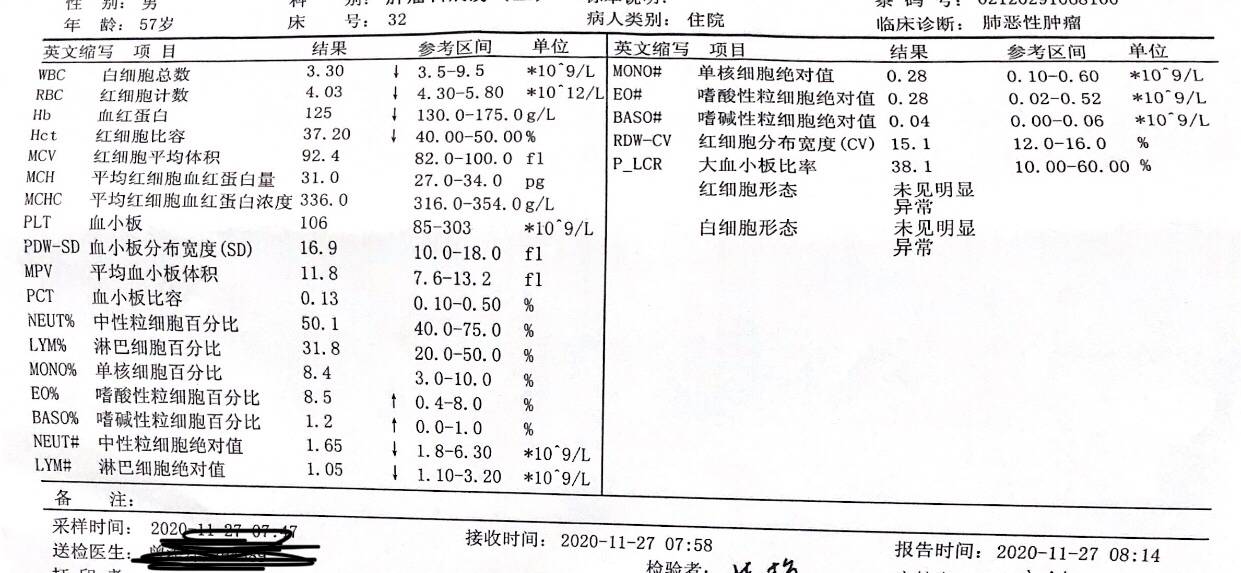 性 别: 男
年 龄: 57岁 床 号: 32 病人类别: 住院 临床诊断: 肺恶性肿瘤
英文缩写 项 目 结果 参考区间 单位 英文缩写 项目 结果 参考区间 单位
WBC 白细胞总数 3.30 ↓ 3.5-9.5 *10^9/L MONO# 单核细胞绝对值 0.28 0.10-0.60 *10^9/L
RBC 红细胞计数 4.03 ↓ 4.30-5.80 *10^12/L EO# 嗜酸性粒细胞绝对值 0.28 0.02-0.52 *10^9/L
Hb 血红蛋白 125 ↓ 130.0-175.0 g/L BASO# 嗜碱性粒细胞绝对值 0.04 0.00-0.06 *10^9/L
Hct 红细胞比容 37.20 ↓ 40.00-50.00 % RDW-CV 红细胞分布宽度(CV) 15.1 12.0-16.0 %
MCV 红细胞平均体积 92.4 82.0-100.0 fl P_LCR 大血小板比率 38.1 10.00-60.00 %
MCH 平均红细胞血红蛋白量 31.0 27.0-34.0 pg 红细胞形态 未见明显
MCHC 平均红细胞血红蛋白浓度 336.0 316.0-354.0 g/L 异常
PLT 血小板 106 85-303 *10^9/L 白细胞形态 未见明显
PDW-SD 血小板分布宽度(SD) 16.9 10.0-18.0 fl 异常
MPV 平均血小板体积 11.8 7.6-13.2 fl
PCT 血小板比容 0.13 0.10-0.50 %
NEUT% 中性粒细胞百分比 50.1 40.0-75.0 %
LYM% 淋巴细胞百分比 31.8 20.0-50.0 %
MONO% 单核细胞百分比 8.4 3.0-10.0 %
EO% 嗜酸性粒细胞百分比 8.5 ↑ 0.4-8.0 %
BASO% 嗜碱性粒细胞百分比 1.2 ↑ 0.0-1.0 %
NEUT# 中性粒细胞绝对值 1.65 ↓ 1.8-6.30 *10^9/L
LYM# 淋巴细胞绝对值 1.05 ↓ 1.10-3.20 *10^9/L
备 注:
采样时间: 2020-11-27 07:47 接收时间: 2020-11-27 07:58 报告时间: 2020-11-27 08:14
送检医生: 检验者: